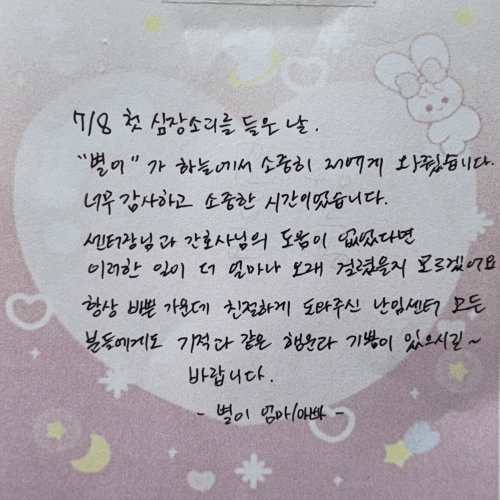 7/8 첫 심장소리를 들은 날.
"별이" 가 하늘에서 소중히 저에게 와줬습니다.
너무 감사하고 소중한 시간이었습니다.
센터장님과 간호사님의 도움이 없었다면
이러한 일이 더 얼마나 오래 걸렸을지 모르겠어요
항상 바쁜 가운데 친절하게 도와주신 난임센터 모든
분들에게도 기적과 같은 행운과 기쁨이 있으시길~
바랍니다.
- 별이 엄마/아빠 -